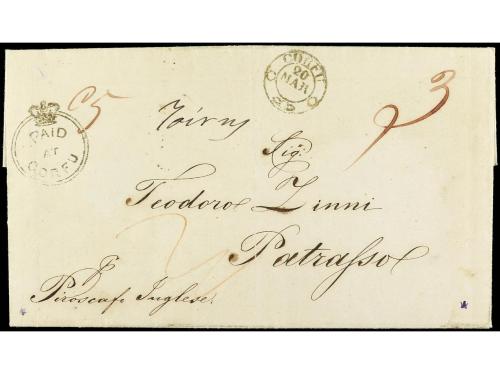 CORFU
20
MAR
PAID
AT
CORFU
3
Sig.
Teodoro Zinni
Patrasso
Piroscafo Inglese.